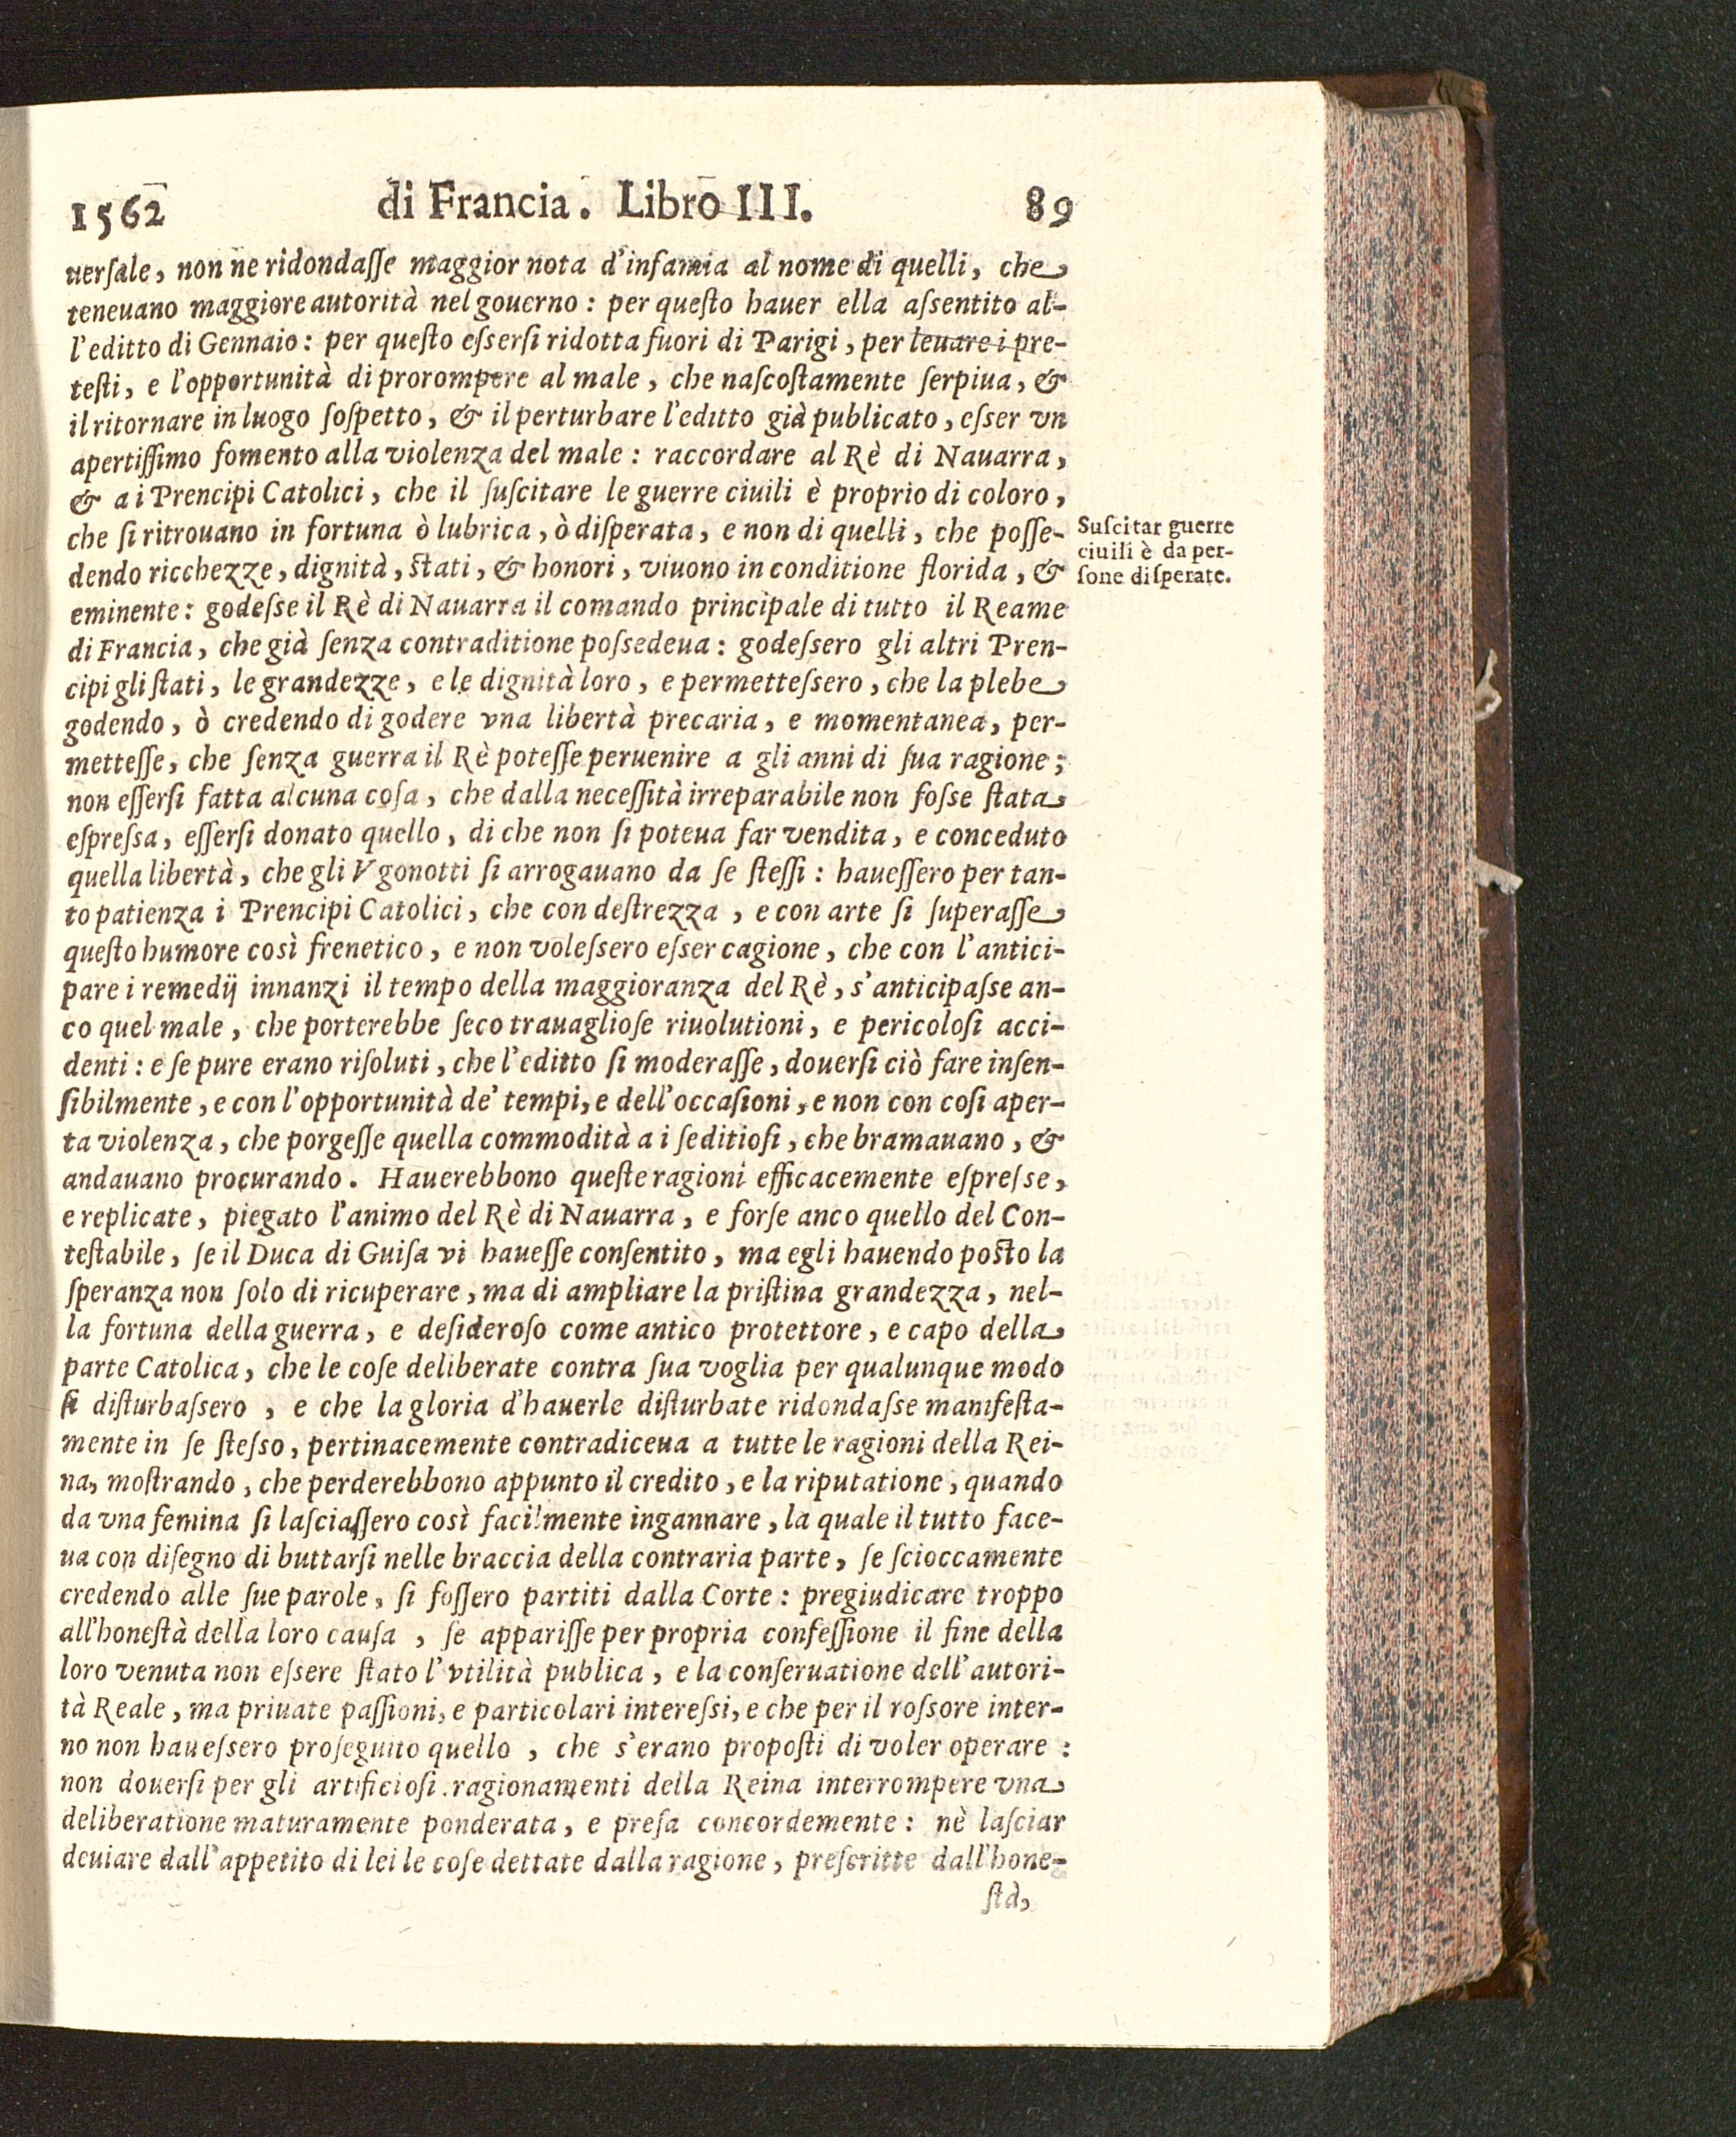 1562 di Francia. Libro III. 89
uerſale, non ne ridondaſſe maggior nota d'infamia al nome di quelli, che
teneuano maggiore autorità nel gouerno: per queſto hauer ella aſsentito al-
l'editto di Gennaio: per queſto eſserſi ridotta fuori di Parigi, per leuare i pre-
teſti, e l'opportunità di prorompere al male, che naſcoſtamente ſerpiua, &
il ritornare in luogo ſoſpetto, & il perturbare l'editto già publicato, eſser vn
apertiſſimo fomento alla violenza del male: raccordare al Rè di Nauarra,
& a i Prencipi Catolici, che il ſuſcitare le guerre ciuili è proprio di coloro,
che ſi ritrouano in fortuna ò lubrica, ò diſperata, e non di quelli, che poſſe-
dendo ricchezze, dignità, ſtati, & honori, viuono in conditione florida, &
eminente: godeſse il Rè di Nauarra il comando principale di tutto il Reame
di Francia, che già ſenza contraditione poſsedeua: godeſsero gli altri Pren-
cipi gli ſtati, le grandezze, e le dignità loro, e permetteſsero, che la plebe
godendo, ò credendo di godere vna libertà precaria, e momentanea, per-
metteſſe, che ſenza guerra il Rè poteſſe peruenire a gli anni di ſua ragione;
non eſſerſi fatta alcuna coſa, che dalla neceſſità irreparabile non foſse ſtata
eſpreſsa, eſſerſi donato quello, di che non ſi poteua far vendita, e conceduto
quella libertà, che gli Vgonotti ſi arrogauano da ſe ſteſſi: haueſſero per tan-
to patienza i Prencipi Catolici, che con deſtrezza, e con arte ſi ſuperaſſe
queſto humore così frenetico, e non voleſsero eſser cagione, che con l'antici-
pare i remedij innanzi il tempo della maggioranza del Rè, s'anticipaſse an-
co quel male, che porterebbe ſeco trauaglioſe riuolutioni, e pericoloſi acci-
denti: e ſe pure erano riſoluti, che l'editto ſi moderaſſe, douerſi ciò fare inſen-
ſibilmente, e con l'opportunità de' tempi, e dell'occaſioni, e non con coſi aper-
ta violenza, che porgeſſe quella commodità a i ſeditioſi, che bramauano, &
andauano procurando. Hauerebbono queſte ragioni efficacemente eſpreſse,
e replicate, piegato l'animo del Rè di Nauarra, e forſe anco quello del Con-
teſtabile, ſe il Duca di Guiſa vi haueſſe conſentito, ma egli hauendo poſto la
ſperanza non ſolo di ricuperare, ma di ampliare la priſtina grandezza, nel-
la fortuna della guerra, e deſideroſo come antico protettore, e capo della
parte Catolica, che le coſe deliberate contra ſua voglia per qualunque modo
ſi diſturbaſsero, e che la gloria d'hauerle diſturbate ridondaſse manifeſta-
mente in ſe ſteſso, pertinacemente contradiceua a tutte le ragioni della Rei-
na, moſtrando, che perderebbono appunto il credito, e la riputatione, quando
da vna femina ſi laſciaſſero così facilmente ingannare, la quale il tutto face-
ua con diſegno di buttarſi nelle braccia della contraria parte, ſe ſcioccamente
credendo alle ſue parole, ſi foſſero partiti dalla Corte: pregiudicare troppo
all'honeſtà della loro cauſa, ſe appariſſe per propria confeſſione il fine della
loro venuta non eſsere ſtato l'vtilità publica, e la conſeruatione dell'autori-
tà Reale, ma priuate paſſioni, e particolari intereſsi, e che per il roſsore inter-
no non haueſsero proſeguito quello, che s'erano propoſti di voler operare:
non douerſi per gli artificioſi ragionamenti della Reina interrompere vna
deliberatione maturamente ponderata, e preſa concordemente: nè laſciar
deuiare dall'appetito di lei le coſe dettate dalla ragione, preſcritte dall'hone-
ſtà,
Suſcitar guerre
ciuili è da per-
ſone diſperate.